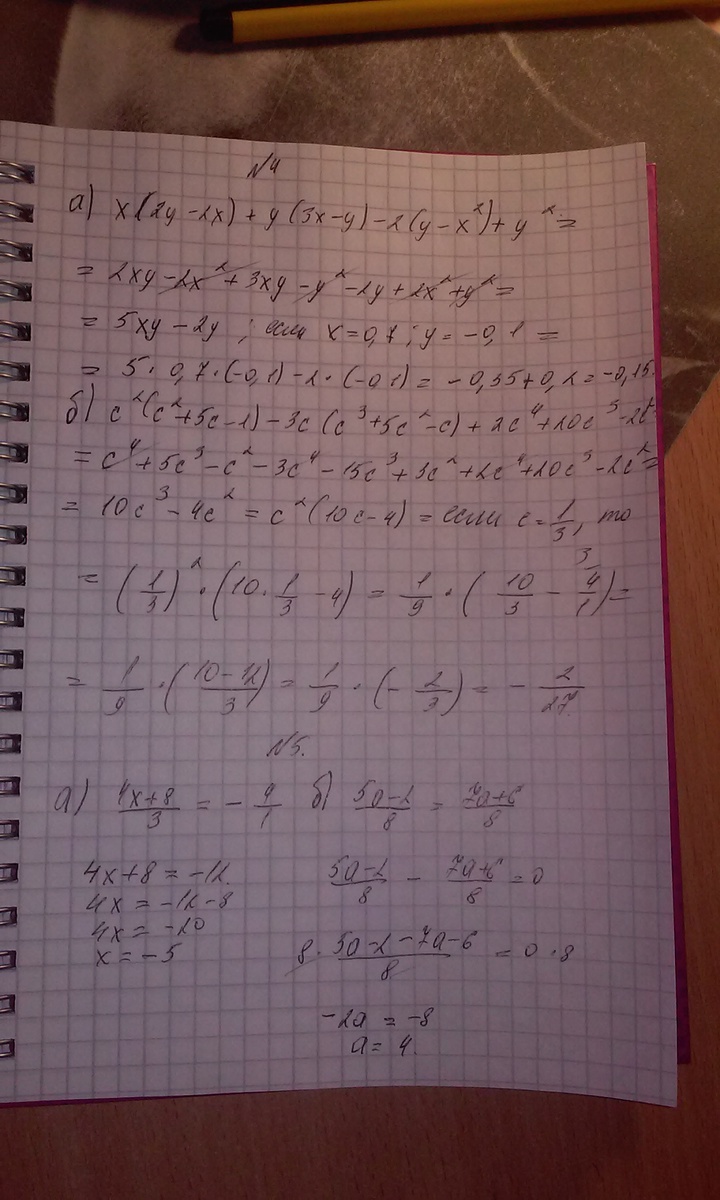 №4
а) x(2y-2x)+y(3x-y)-2(y-x²)+y²=
= 2xy-2x²+3xy-y²-2y+2x²+y²=
= 5xy-2y ; если x=0,7; y=-0,1 =
= 5·0,7·(-0,1)-2·(-0,1)= -0,35+0,2=-0,15.
б) c²(c²+5c-1)-3c(c³+5c²-c)+2c⁴+20c³-2c²
= c⁴+5c³-c²-3c⁴-15c³+3c²+2c⁴+20c³-2c²=
= 10c³-4c² = c²(10c-4) = если c=1/3, то
= (1/3)²·(10·1/3-4) = 1/9·(10/3-4/1)= 3
= 1/9·((10-12)/3)= 1/9·(-2/3)= -2/27.
№5.
а) (4x+8)/3 = -4/1 б) (5a-2)/8 = (7a+6)/8
4x+8=-12. (5a-2)/8 - (7a+6)/8 =0
4x=-12-8
4x=-20
x=-5 8·(5a-2-7a-6)/8 = 0·8
-2a = -8
a= 4.